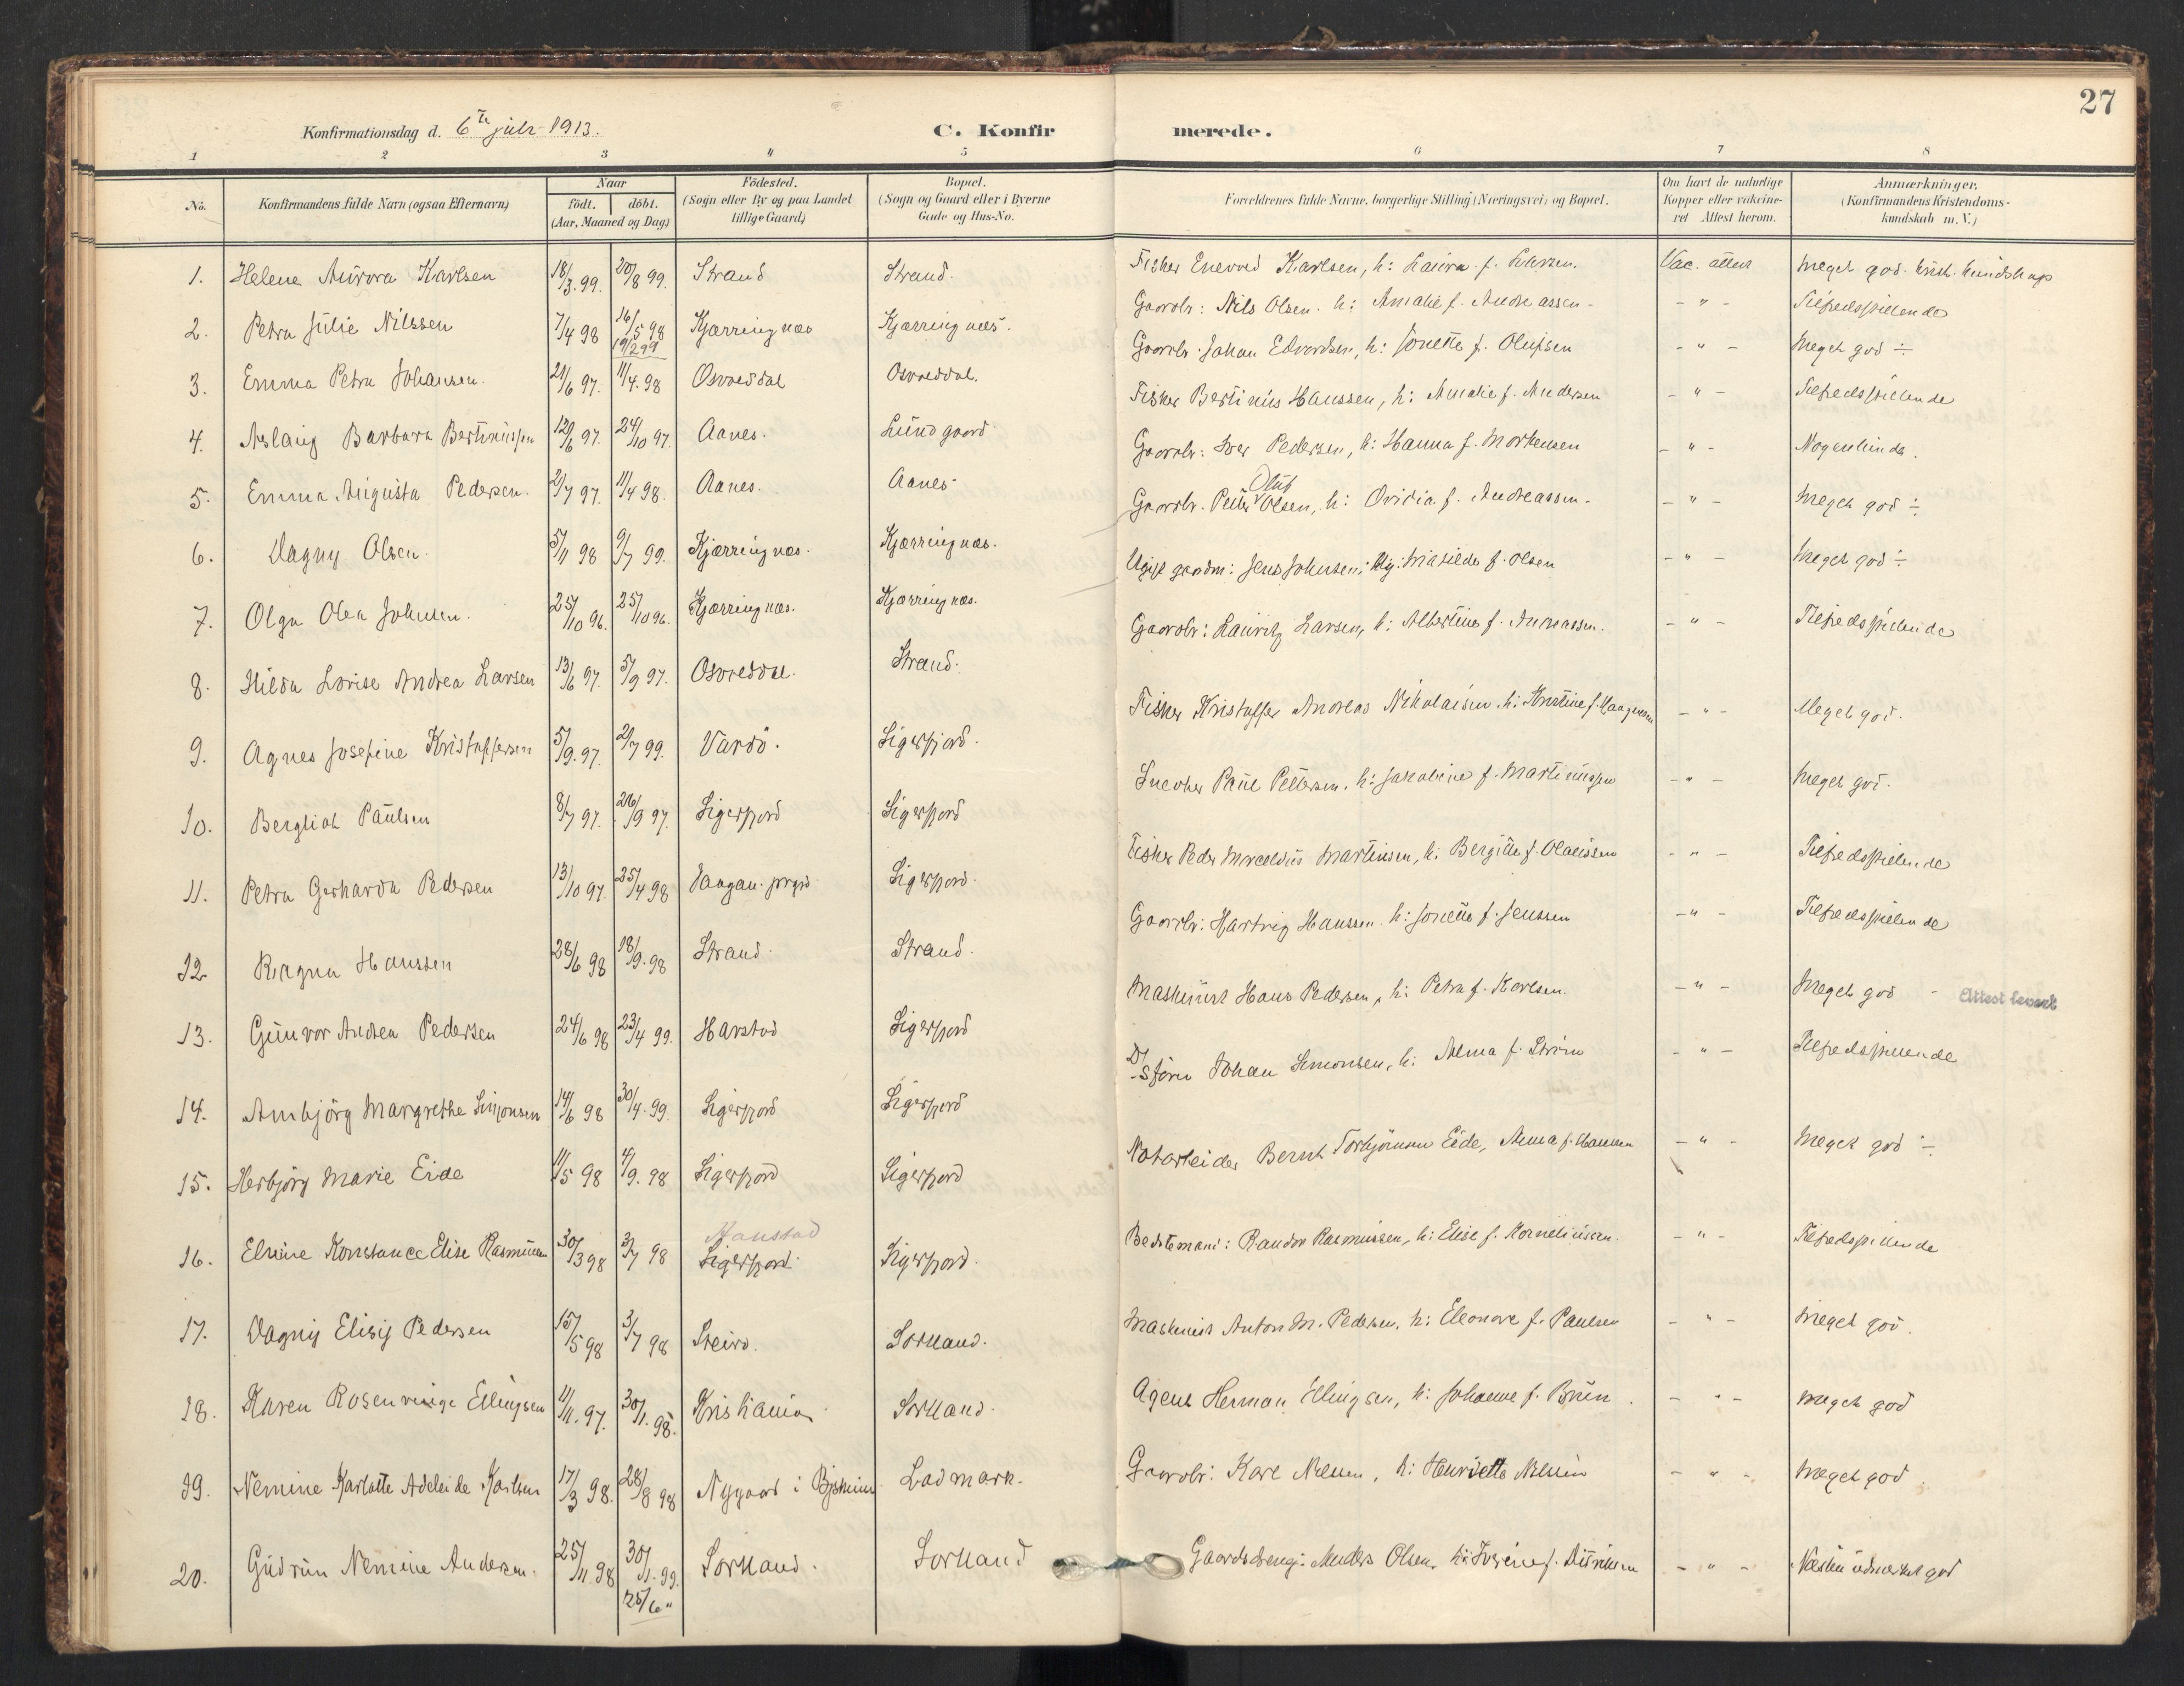 27
Konfirmationsdag d. 6te juli 1913. C. Konfirmerede.
1 2 3 4 5 6 7 8
No. Konfirmandens fulde Navn (ogsaa Efternavn) Naar födt. döbt. (Aar, Maaned og Dag) Födested. (Sogn eller By og paa Landet tillige Gaard) Bopæl. (Sogn og Gaard eller i Byerne Gade og Hus-No. Forældrenes fulde Navne, borgerlige Stilling (Næringsvei) og Bopæl. Om havt de naturlige Kopper eller vakcineret Attest herom. Anmærkninger. (Konfirmandens Kristendomskundskab m. V.)
1. Helene Aurora Karlsen 18/3.99. 20/8 99. Strand Strand. Fisker Enevold Karlsen, h: Laura f. Larsen. Vac. attest meget god. krist. kundskap
2. Petra Julie Nilssen 7/4 98 16/5 98 19/2 99 Kjærringnes Kjærringnes. Gaardbr: Nils Olsen. h: Amalie f. Andreassen - - " - Tilfredsstillende
3. Emma Petra Johansen. 21/6 97. 11/4.98 Osvolddal Osvolddal. Gaardbr. Johan Edvardsen, h: Jonette f. Olufsen - " - Meget god ÷
4. Aslaug Barbara Bertinussen 12/6 97. 24/10 97. Aanes. Lundgaard Fisker Bertinius Hanssen, h: Amalie f. Andersen - " - Tilfredsstillende
5. Emma Augusta Pedersen. 2/7 97. 11/4 98. Aanes. Aanes Gaardbr: Iver Pedersen, h: Hanna f. Mortensen - " - Nogenlunde.
6. Dagny Olsen. 5/11 98 9/7 99. Kjærringnes. Kjærringnes. Gaardbr. Peder Oluf Olsen, h: Ovidia f. Andreassen - - " - Meget god ÷
7. Olga Olea Johnsen. 25/10 96. 25/10 96. Kjærringnes. Kjærringnes. Ugift gaardm: Jens Johnsen; Ug: Matilde f. Olsen - " - Meget god ÷
8. Hilda Lovise Andrea Larsen 13/6 97. 5/9 97. Osvolddal. Strand. Gaardbr: Lauritz Larsen, h: Albertine f. Andreassen. - " - Tilfredsstillende
9. Agnes Josefine Kristoffersen 5/9.97. 2/7 99. Vardö. Sigerfjord. Fisker Kristoffer Andreas Nikolaisen h: Kristine f. Haagensen - " - Meget god.
10. Bergliot Paulsen 8/7 97. 26/9 97. Sigerfjord Sigerfjord Snedker Paul Pettersen. h: Jakobine f. Martinussen - " - Meget god.
11. Petra Gerharda Pedersen 13/10 97. 25/4 98 Vaagan prgjd Sigerfjord. Fisker Peder Marcelius Martinsen, h: Bergitte f. Olaussen - " - Tilfredsstillende
12. Ragna Hanssen 28/6 98 18/9.98 Strand. Strand. Gaardbr: Hartvig Hanssen. h: Jonette f. Jenssen - " - Tilfredsstillende
13. Gunvor Andrea Pedersen 24/6 98 23/4 99. Harstad Sigerfjord Maskinist Hans Pedersen, h: Petra f. Karlsen. - " - Meget god - Attest levert
14. Ambjörg Margrethe Simonsen 14/6 98 30/4.99. Sigerfjord Sigerfjord Johan Simonsen, h: Alma f. Ström - " - Tilfredsstillende
15. Herbjörg Marie Eide 11/5 98 4/9.98 Sigerfjord Sigerfjord Notarbeider Bernt Torbjörnsen Eide, Anna f. Hansen - " - Meget god ÷
16. Elmine Konstance Elise Rasmussen 30/3 98 3/7 98 Hanstad Sigerfjord. Sigerfjord. Bedstemand: Randor Rasmussen, h: Elise f. Korneliussen. - " - Tilfredsstillende
17. Dagny Elisif Pedersen 15/5 98 3/7 98 Steiro. Sortland. Maskinist Anton M. Pedersen, h: Eleonore f. Paulsen - " - Meget god.
18. Karen Rosenvinge Ellingsen 11/11.97. 30/1.98. Kristiania Sortland. Agent Herman Ellingsen, h: Johanne f. Brun. - " - meget god
19. Nemine Karlotte Adeleide Karlsen 17/3 98. 28/8 98 Nygaard i Ladmark. Gaardbr: Karl Nilssen, h: Henriette Nilssen - " - Meget god.
20. Gudrun Nemine Andersen. 25/11.98 30/1.99. 25/6 " Sortland. Sortland Gaardsdreng: Anders Olsen, h: Iverine f. - " - Næsten udmerket god